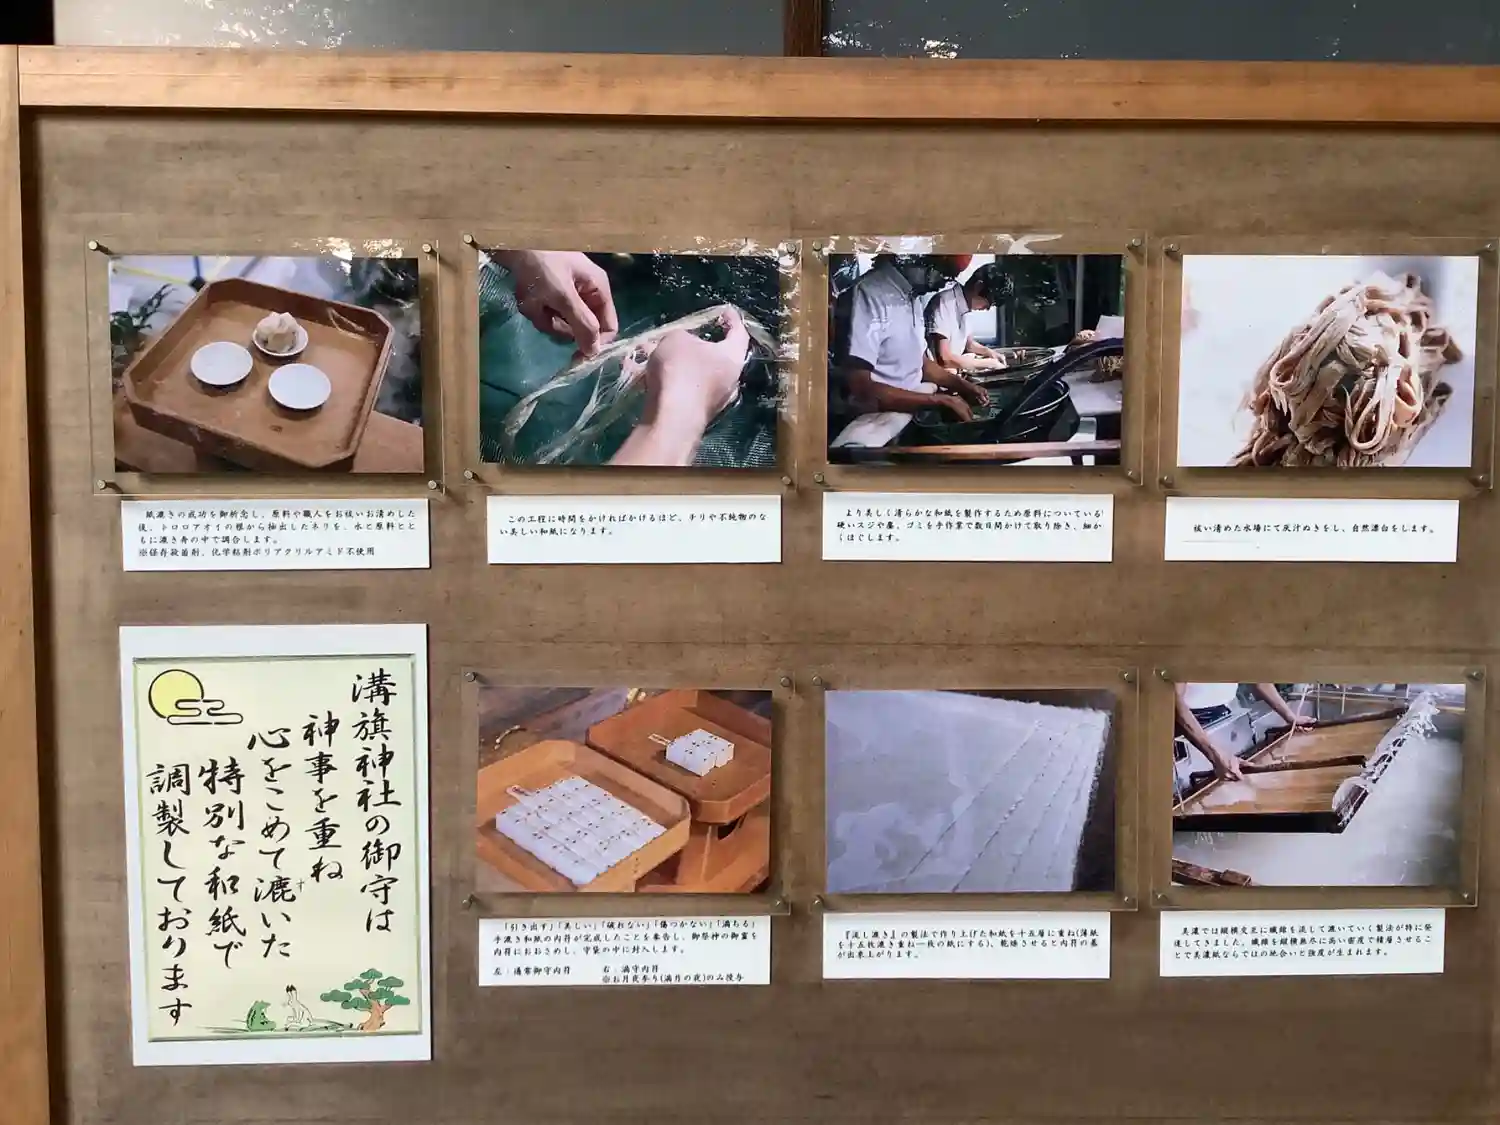 祓い清めた水場にて灰汁ぬきをし、自然漂白をします。
より美しく清らかな和紙を製作するため原料についている
硬いスジや塵、ゴミを手作業で数日間かけて取り除き、細か
くほぐします。
この工程に時間をかければかけるほど、チリや不純物のな
い美しい和紙になります。
紙漉きの成功を御祈念し、原料や職人をお祓いお清めした
後、トロロアオイの根から抽出したネリを、水と原料とと
もに漉き舟の中で調合します。
※保存殺菌剤、化学粘剤ポリアクリルアミド不使用
美濃では縦横交互に繊維を流して漉いていく製法が特に発
達してきました。繊維を縦横無尽に高い密度で積層させるこ
とで美濃紙ならではの地合いと強度が生まれます。
『流し漉き』の製法で作り上げた和紙を十五層に重ね(薄紙
を十五枚漉き重ね一枚の紙にする)、乾燥させると内符の基
が出来上がります。
「引き出す」「美しい」「破れない」「傷つかない」「満ちる」
手漉き和紙の内符が完成したことを奉告し、御祭神の御霊を
内符におおさめし、守袋の中に封入します。
左:通常御守内符 右:満守内符
※お月夜参り(満月の夜)のみ授与
溝旗神社の御守は
神事を重ね
心をこめて漉いた
す
特別な和紙で
調製しております